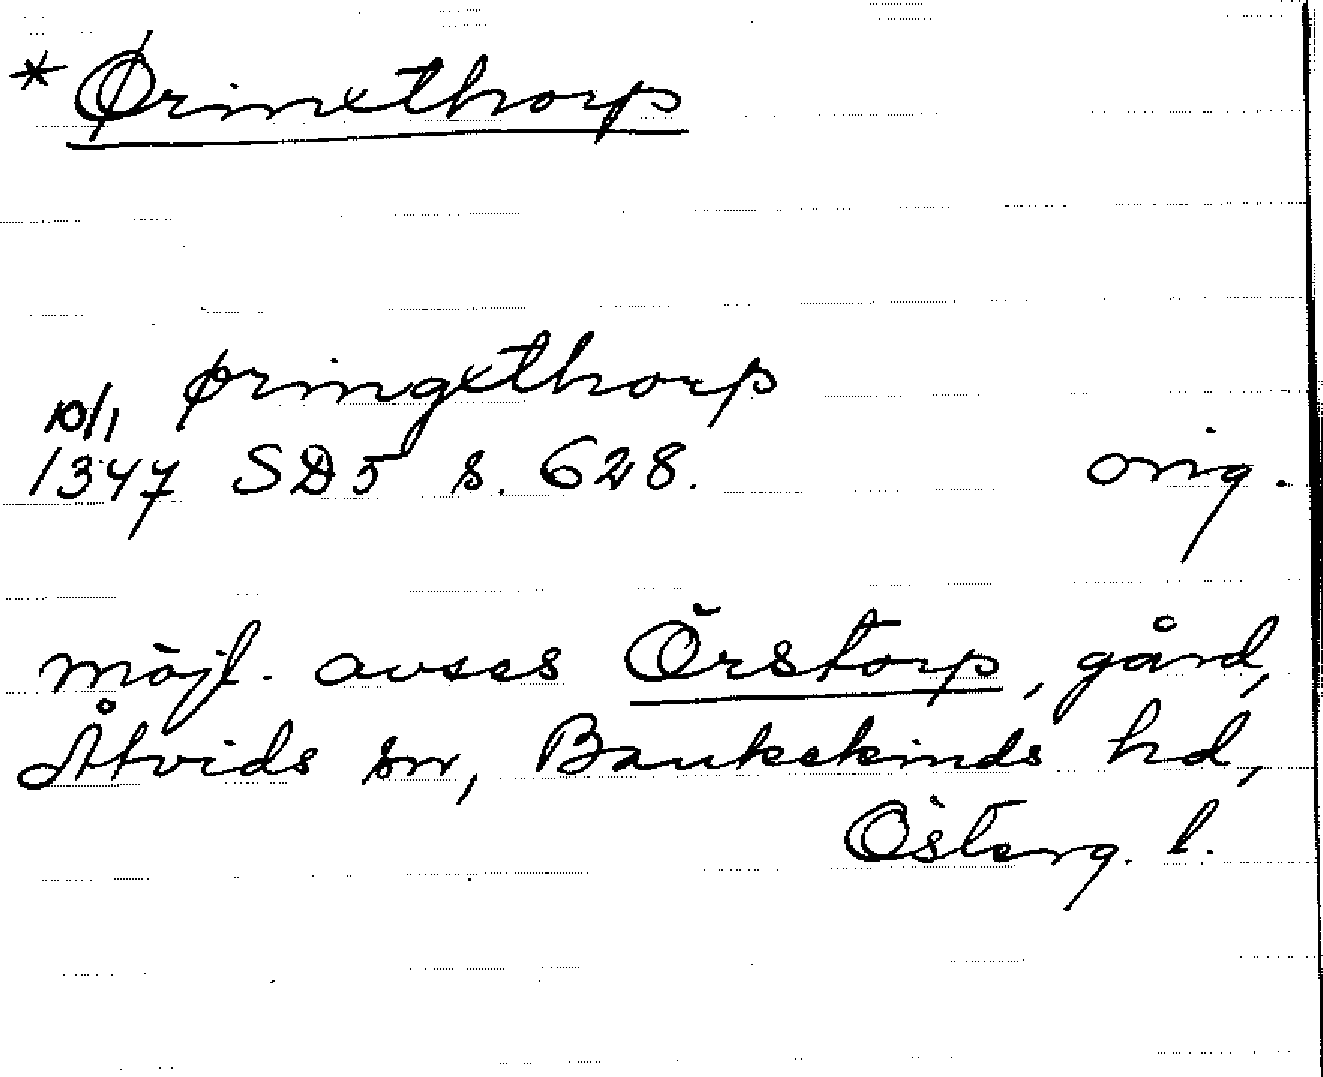 * Ørinxthorp
øringxthorp
10/1
1347 SD5 s. 628. orig.
möjl. avses Örstorp, gård,
Åtvids sn, Bankekinds hd,
Österg. l.